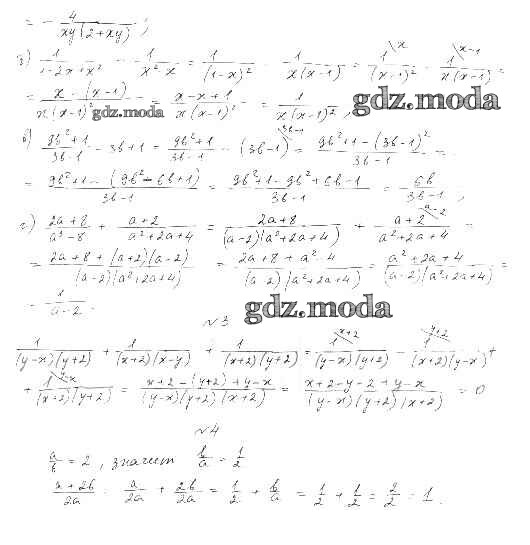 = - 4/(xy(2+xy)) ;
б) 1/(1-2x+x²) - 1/(x²-x) = 1/(1-x)² - 1/(x(x-1)) = 1/(x-1)² - 1/(x(x-1)) =
= (x-(x-1))/(x(x-1)²) = (x-x+1)/(x(x-1)²) = 1/(x(x-1)²) ,
gdz.moda
gdz.moda
в) (9b²+1)/(3b-1) - 3b+1 = (9b²+1)/(3b-1) - (3b-1) = (9b²+1-(3b-1)²)/(3b-1) =
= (9b²+1-(9b²-6b+1))/(3b-1) = (9b²+1-9b²+6b-1)/(3b-1) = 6b/(3b-1) ,
г) (2a+8)/(a³-8) + (a+2)/(a²+2a+4) = (2a+8)/((a-2)(a²+2a+4)) + (a+2)/(a²+2a+4) =
= (2a+8+(a+2)(a-2))/((a-2)(a²+2a+4)) = (2a+8+a²-4)/((a-2)(a²+2a+4)) = (a²+2a+4)/((a-2)(a²+2a+4)) =
= 1/(a-2) .
gdz.moda
№3
1/((y-x)(y+2)) + 1/((x+2)(x-y)) + 1/((x+2)(y+2)) = 1/((y-x)(y+2)) - 1/((x+2)(y-x)) +
+ 1/((x+2)(y+2)) = (x+2-(y+2)+y-x)/((y-x)(y+2)(x+2)) = (x+2-y-2+y-x)/((y-x)(y+2)(x+2)) = 0
№4
a/b = 2 , значит b/a = 1/2
(a+2b)/2a = a/2a + 2b/2a = 1/2 + b/a = 1/2 + 1/2 = 2/2 = 1 .